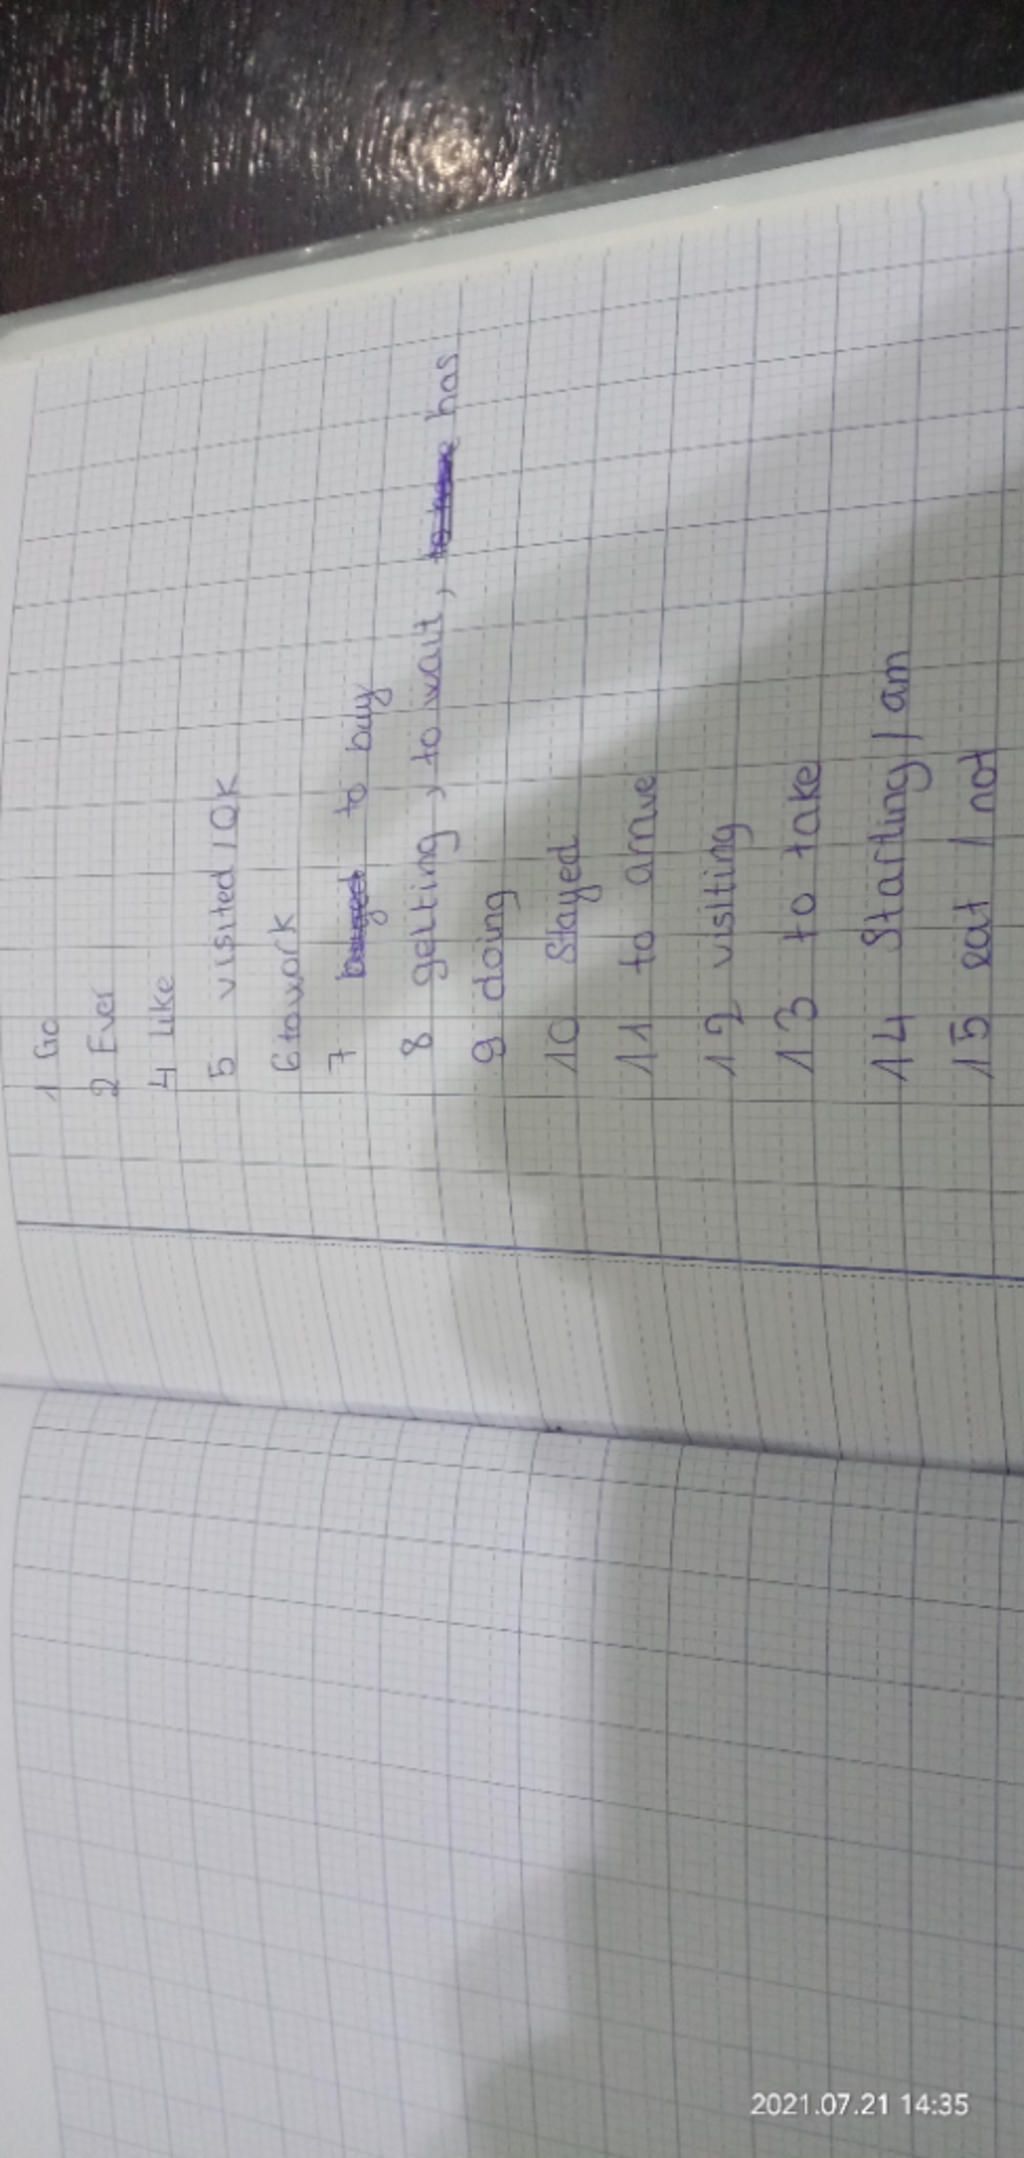 1 Go
2 Ever
4 Like
5 visited / OK
6 to work
7 to buy
8 getting, to wait, has
9 doing
10 Stayed
11 to arrive
12 visiting
13 to take
14 Starting / am
15 eat / not
2021.07.21 14:35